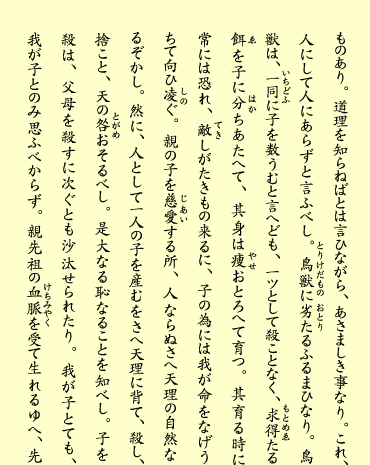 ものあり。道理を知らねばとは言ひながら、あさましき事なり。これ、
人にして人にあらずと言ふべし。鳥獣に劣たるふるまひなり。鳥
獣は、一同に子を数うむと言へども、一ツとして殺ことなく、求得たる
餌を子に分ちあたへて、其身は痩おとろへて育つ。其育る時に
常には恐れ、敵しがたきもの来るに、子の為には我が命をなげう
ちて向ひ凌ぐ。親の子を慈愛する所、人ならぬさへ天理の自然な
るぞかし。然に、人として一人の子を産むをさへ天理に背て、殺し、
捨こと、天の咎おそるべし。是大なる恥なることを知べし。子を
殺は、父母を殺すに次ぐとも沙汰せられたり。我が子とても、
我が子とのみ思ふべからず。親先祖の血脈を受て生れるゆへ、先